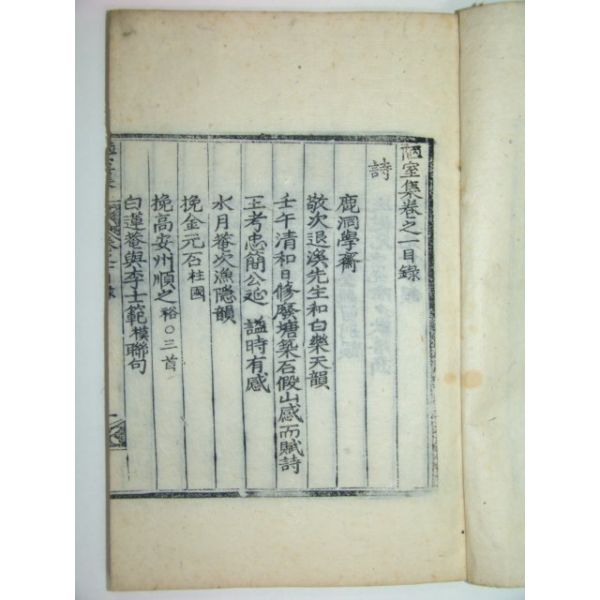 陋室集卷之一目錄
詩
鹿洞學齋
敬次退溪先生和白樂天韻
壬午清和日修廢塘築石假山感而賦詩
王考忠簡公延 謚時有感
水月菴次漁隱韻
挽金元石柱國
挽高安州順之裕○三首
白蓮菴與李士範模聯句